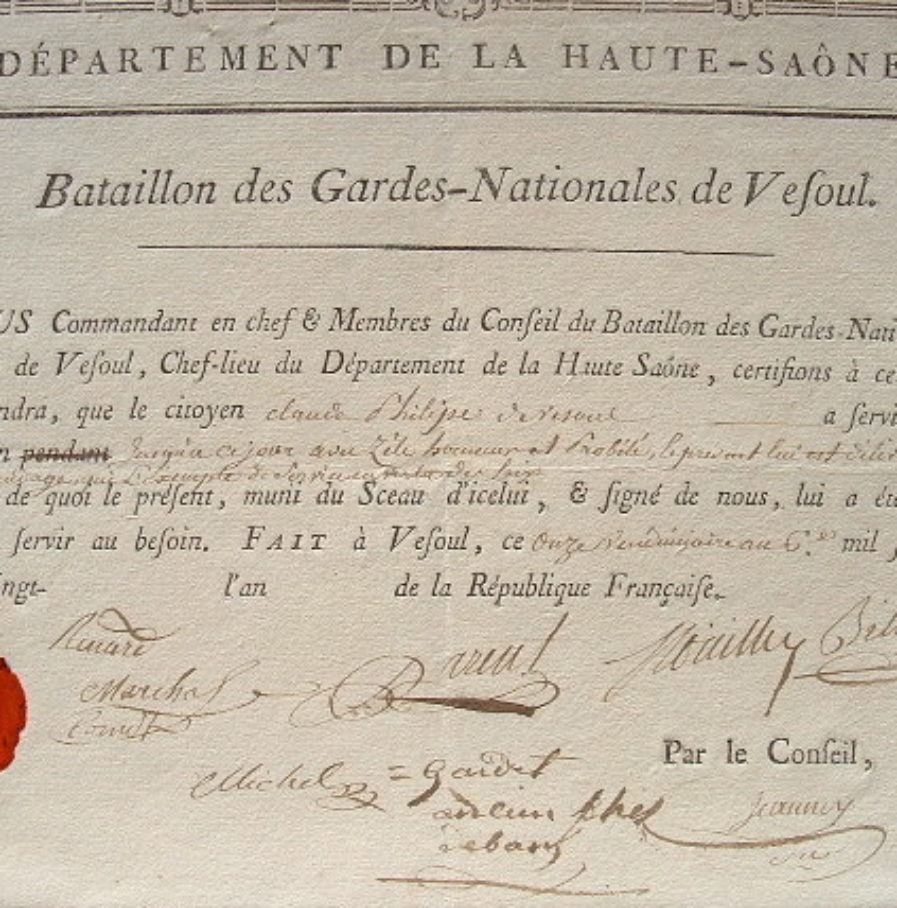 DÉPARTEMENT DE LA HAUTE-SAÔNE
Bataillon des Gardes-Nationales de Veſoul.
US Commandant en chef & Membres du Conſeil du Bataillon des Gardes-Nati
de Veſoul, Chef-lieu du Département de la Haute Saône, certifions à ce
ndra, que le citoyen claude Philipe de vesoul a ſervi
n pendant Jusqu'a ce jour avec Zéle honneur et Probité, le present lui est déliv
de quoi le préſent, muni du Sceau d'icelui, & ſigné de nous, lui a été
ſervir au beſoin. FAIT à Veſoul, ce onze Vendemiaire au 6.e mil,
ingt- l'an de la République Françaiſe.
Renard
Marchal
Par le Conſeil,
Michel = Gardet
ancien chef
de
Jeanney